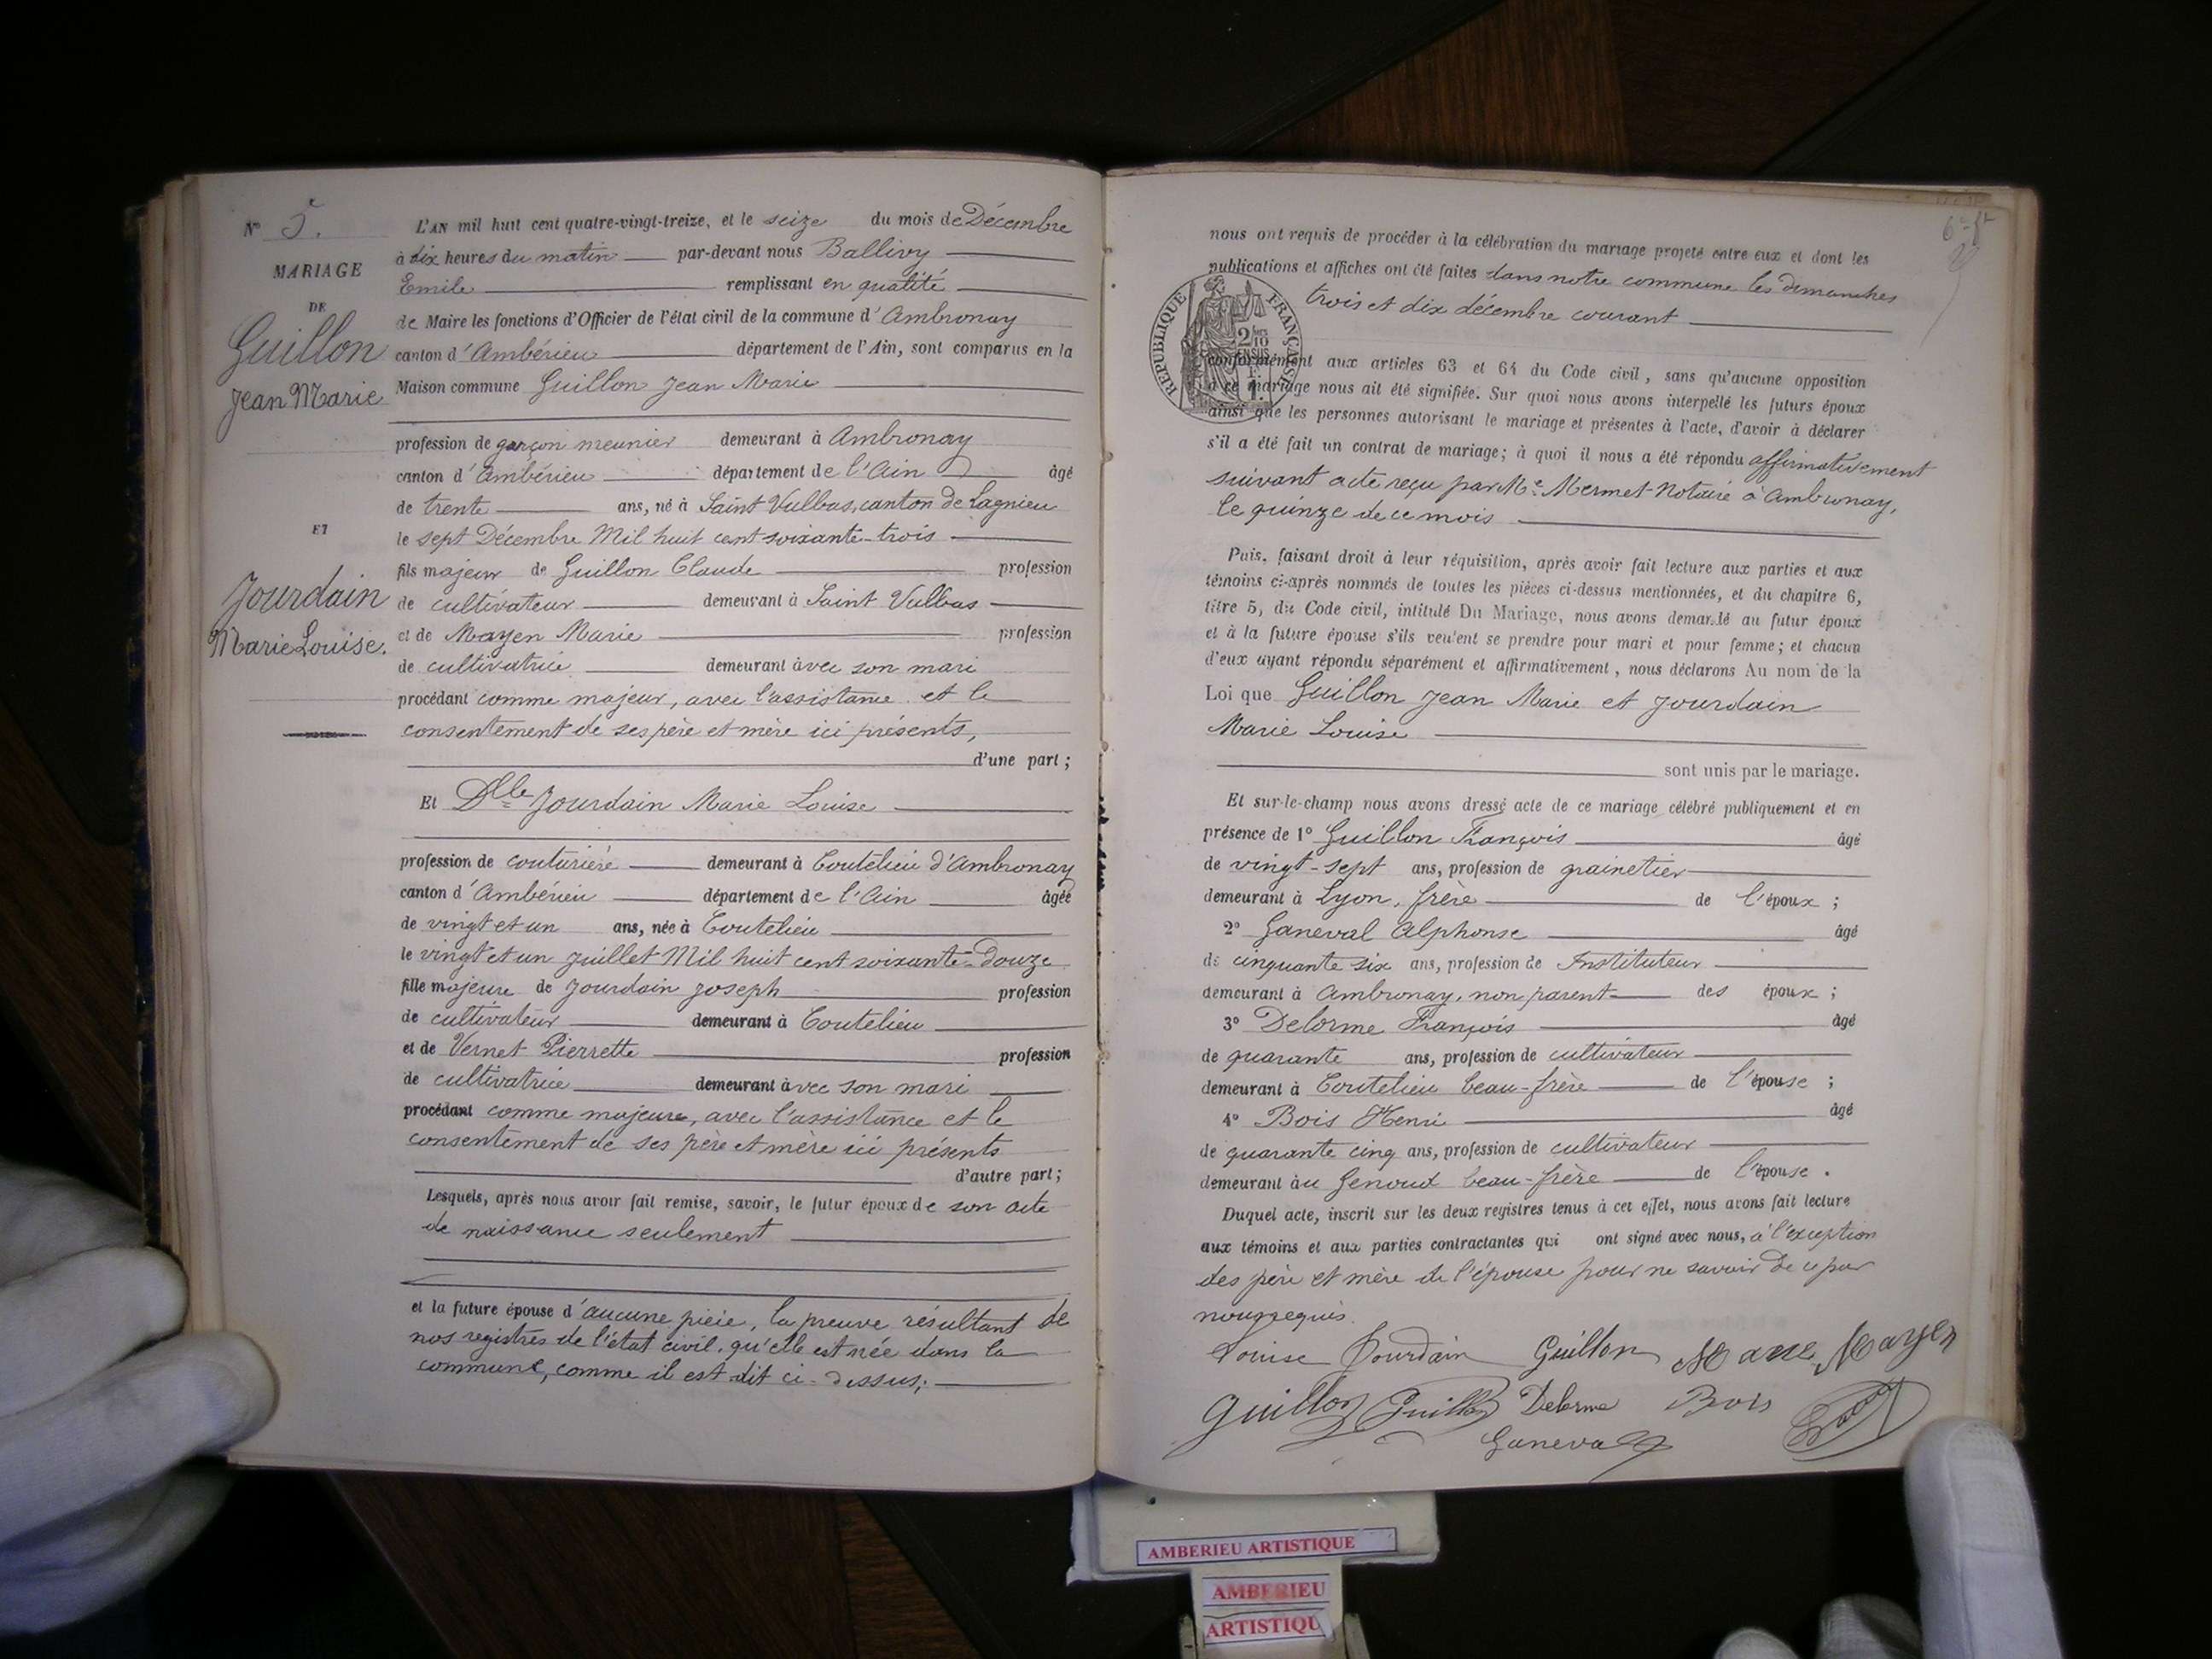 Nº 5.e
MARIAGE
DE
Guillon
Jean Marie
ET
Jourdain
Marie Louise.
L'AN mil huit cent quatre-vingt-treize, et le seize du mois de Décembre
à dix heures du matin par-devant nous Ballivy
Emile remplissant en qualité
de Maire les fonctions d'Officier de l'état civil de la commune d'Ambronay
canton d'Ambérieu département de l'Ain, sont comparus en la
Maison commune Guillon Jean Marie
profession de garçon meunier demeurant à Ambronay
canton d'Ambérieu département de l'Ain âgé
de trente ans, né à Saint Vulbas, canton de Lagnieu
le sept Décembre Mil huit cent soixante-trois
fils majeur de Guillon Claude profession
de cultivateur demeurant à Saint Vulbas
et de Mayen Marie profession
de cultivatrice demeurant avec son mari
procédant comme majeur, avec l'assistance et le
consentement de ses père et mère ici présents,
d'une part ;
Et Dlle Jourdain Marie Louise
profession de couturière demeurant à Coutelieu d'Ambronay
canton d'Ambérieu département de l'Ain âgée
de vingt et un ans, née à Coutelieu
le vingt et un Juillet Mil huit cent soixante-Douze
fille majeure de Jourdain Joseph profession
de cultivateur demeurant à Coutelieu
et de Vernet Pierrette profession
de cultivatrice demeurant avec son mari
procédant comme majeure, avec l'assistance et le
consentement de ses père et mère ici présents
d'autre part ;
Lesquels, après nous avoir fait remise, savoir, le futur époux de son acte
de naissance seulement
et la future épouse d'aucune pièce, la preuve résultant de
nos registres de l'état civil, qu'elle est née dans la
commune, comme il est dit ci-dessus ;
nous ont requis de procéder à la célébration du mariage projeté entre eux et dont les
publications et affiches ont été faites dans notre commune les dimanches
trois et dix décembre courant
RÉPUBLIQUE FRANÇAISE
2/10 EN SUS
conformément aux articles 63 et 64 du Code civil, sans qu'aucune opposition
à ce mariage nous ait été signifiée. Sur quoi nous avons interpellé les futurs époux
ainsi que les personnes autorisant le mariage et présentes à l'acte, d'avoir à déclarer
s'il a été fait un contrat de mariage ; à quoi il nous a été répondu affirmativement
suivant acte reçu par Me. Mermet Notaire à Ambronay,
le quinze de ce mois
Puis, faisant droit à leur réquisition, après avoir fait lecture aux parties et aux
témoins ci-après nommés de toutes les pièces ci-dessus mentionnées, et du chapitre 6,
titre 5, du Code civil, intitulé Du Mariage, nous avons demandé au futur époux
et à la future épouse s'ils veulent se prendre pour mari et pour femme ; et chacun
d'eux ayant répondu séparément et affirmativement, nous déclarons Au nom de la
Loi que Guillon Jean Marie et Jourdain
Marie Louise
sont unis par le mariage.
Et sur-le-champ nous avons dressé acte de ce mariage célébré publiquement et en
présence de 1º Guillon François âgé
de vingt-sept ans, profession de grainetier
demeurant à Lyon, frère de l'époux ;
2º Ganeval Alphonse âgé
de cinquante six ans, profession de Instituteur
demeurant à Ambronay, non parent des époux ;
3º Delorme François âgé
de quarante ans, profession de cultivateur
demeurant à Coutelieu beau-frère de l'épouse ;
4º Bois Henri âgé
de quarante cinq ans, profession de cultivateur
demeurant au Genoud beau-frère de l'épouse.
Duquel acte, inscrit sur les deux registres tenus à cet effet, nous avons fait lecture
aux témoins et aux parties contractantes qui ont signé avec nous, à l'exception
des père et mère de l'épouse pour ne savoir de ce par
nous requis.
Louise Jourdain Guillon Marie Mayen
Guillon Guillon Delorme Bois
Ganeval
AMBERIEU ARTISTIQUE
AMBERIEU
ARTISTIQU